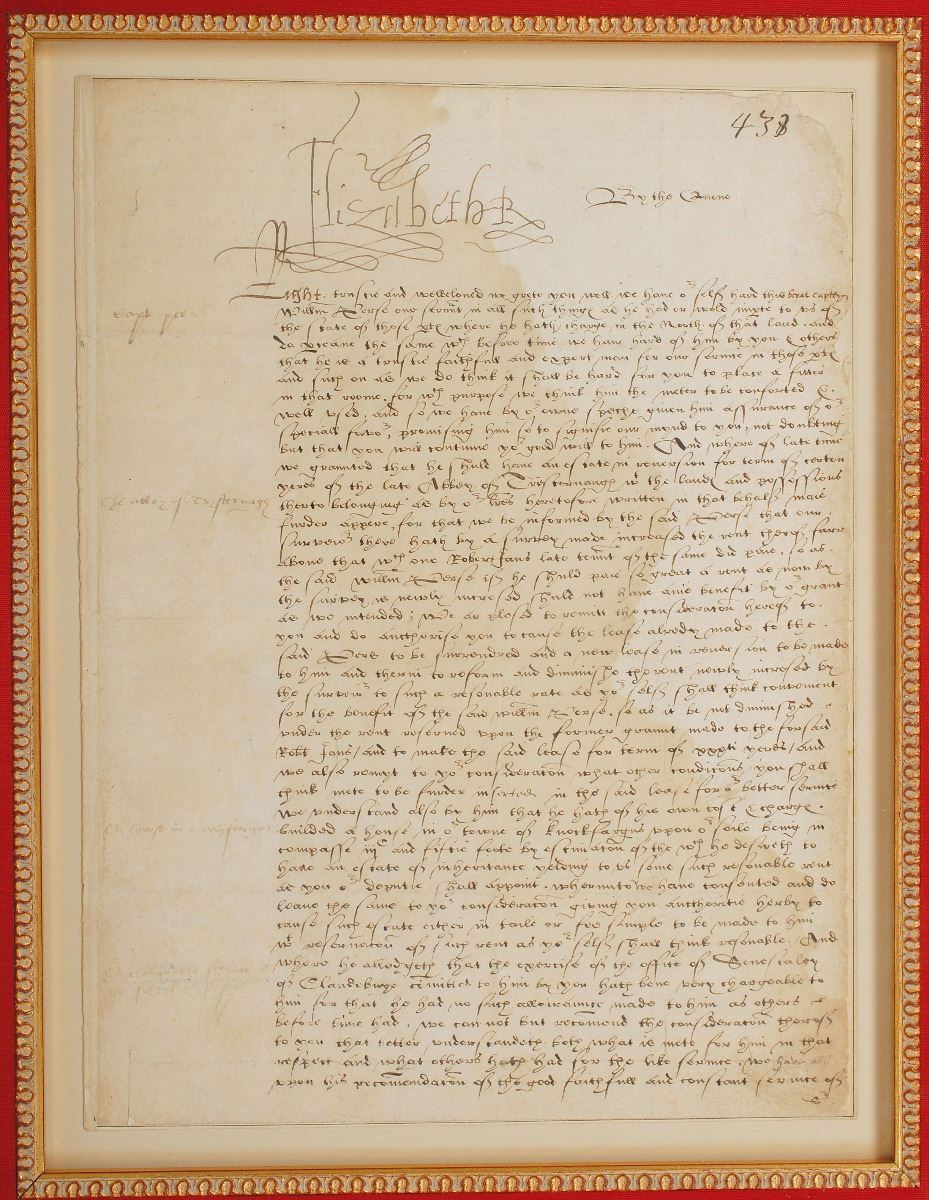 438
Elizabeth R
By the Quene
Right trustie and welbeloved we grete you well. we have oʳ self hard this berar Captayn
Willm Perse our servant in all such things as he had or wold impte to us of
the state of those ptes where he hath charge in the North of that land. and
do pceave the same wᶜʰ before time we have hard of him by you & others
that he is a trustie faithfull and expert man for our service in those ptes
and such on as we do think it shall be hard for you to place a fitter
in that roome. for wᶜʰ purpose we think him the meter to be conforted &
well used, and so we have by oʳ owne speche given him assurance of oʳ
speciall favoʳ, promising him so to signifie our mynd to you, not doubting
but that you will continue yoʳ good will to him. And where of late time
we graunted that he shuld have an estate in reversion for term of certen
yeres of the late Abbey of Tristernaugh wᵗ the lands and possessions
therto belonging as by oʳ lres heretofore written in that behalf maie
furder appere, for that we be informed by the said Perse that our
surveioʳ there hath by a survey made increased the rent therof farr
above that wᶜʰ one Robert Jans late tennt of the same did paie. so as
the said Willm Perse if he shuld paie so great a rent as now by
the survey is newly incresed shuld not have anie benefit by oʳ grant
as we intended; We ar plesed to remitt the consideration hereof to
you and do aucthorise you to cause the lease alredy made to the
said Pers to be surrendred and a new lease in reversion to be made
to him and therin to reform and diminish the rent newly incresed by
the surveioʳ to such a resonable rate as yoʳ self shall think convenient
for the benefit of the said willm Perse, so as it be not diminished
under the rent reserved upon the former graunt made to the forsaid
Robt Jans / and to make the said lease for term of xxxti yeres / and
we also rempt to yoʳ consideracon what other condicons you shall
think mete to be furder inserted in the said lease for oʳ better service
We understand also by him that he hath of his own cost & charge
builded a house in oʳ towne of Knockfargus upon oʳ soile being in
compasse and fiftie foote by estimacon of the wᶜʰ he desireth to
have an estate of inheritance yelding to us some such resonable rent
as you oʳ deputie shall appoint. wherunto we have consented and do
leave the same to yoʳ consideracon giving you aucthoritie herby to
cause such estate either in taile or fee simple to be made to him
wᵗ reservacon of such rent as yoʳ self shall think resonable. And
where he alledgeth that the exercise of the office of Senescalcy
of Clandeboye comitted to him by you hath bene very chargeable to
him for that he had no such allowaunce made to him as others
before time had. we can not but recomend the consideracon therof
to you that better understandeth both what is mete for him in that
respect and what others hath had for the like service. we have
upon his recomendacon of the good faithfull and constant service of
The abbey of Tristernagh